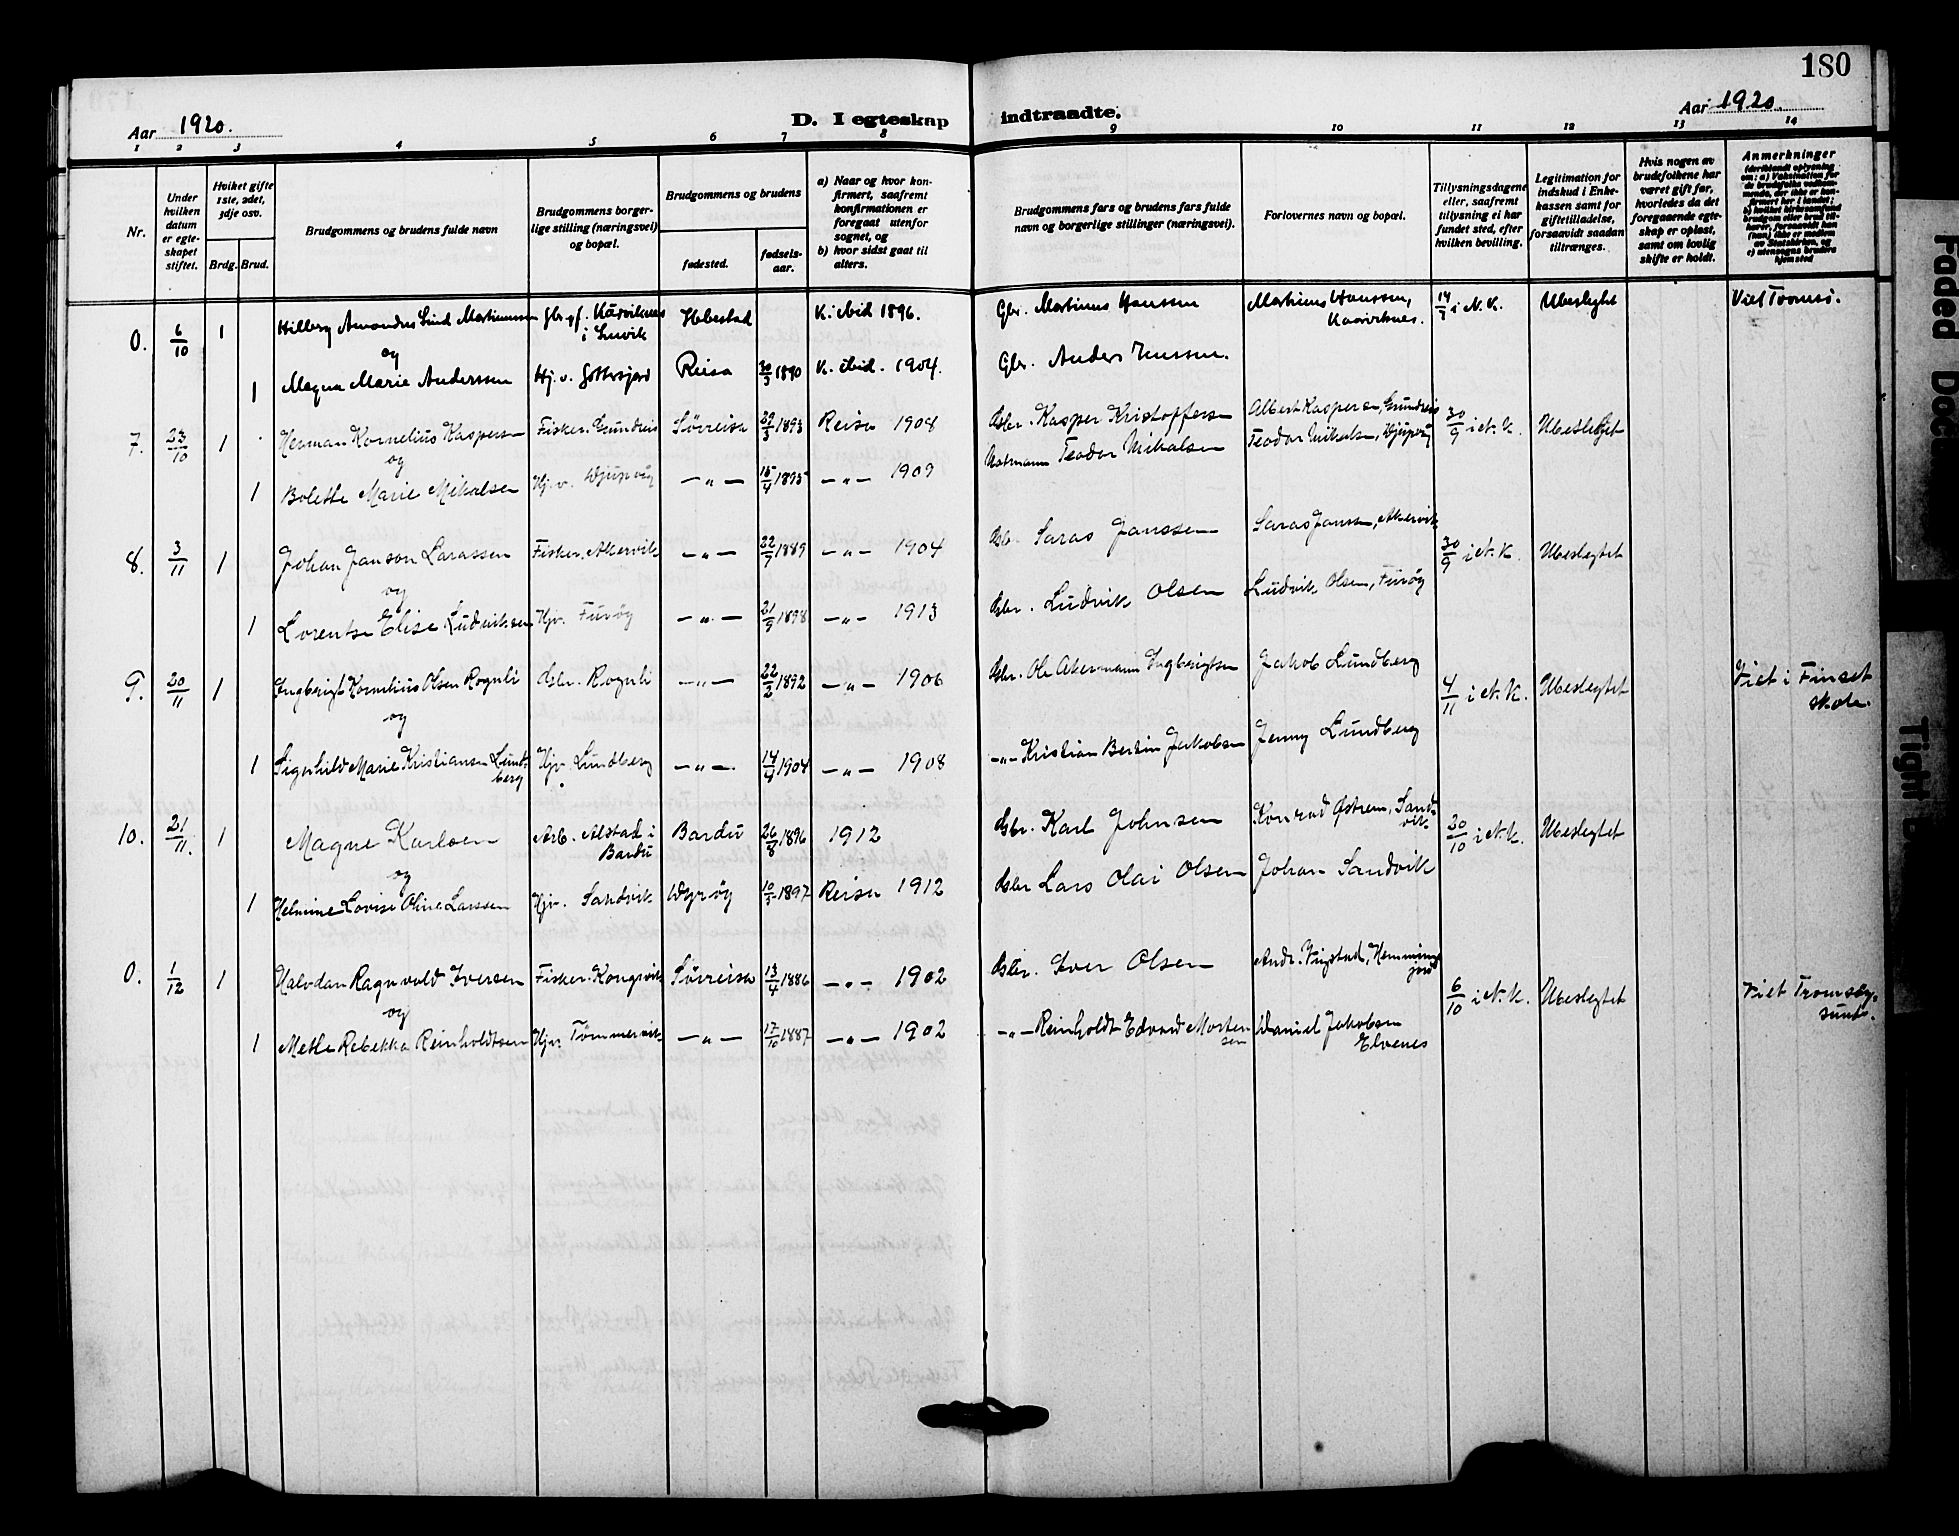 180
Aar 1920.
D. I egteskap indtraadte.
Aar 1920.
1 2 3 4 5 6 7 8 9 10 11 12 13 14
Nr.
Under hvilken datum er egteskapet stiftet.
Hviket gifte 1ste, 2det, 3dje osv.
Brdg. Brud.
Brudgommens og brudens fulde navn
Brudgommens borgerlige stilling (næringsvei) og bopæl.
Brudgommens og brudens
fødested.
fødselsaar.
a) Naar og hvor konfirmert, saafremt konfirmationen er foregaat utenfor sognet, og
b) hvor sidst gaat til alters.
Brudgommens fars og brudens fars fulde navn og borgerlige stillinger (næringsvei).
Forlovernes navn og bopæl.
Tillysningsdagene eller, saafremt tillysning ei har fundet sted, efter hvilken bevilling.
Legitimation for indskud i Enkekassen samt for giftetilladelse, forsaavidt saadan tiltrænges.
Hvis nogen av brudefolkene har været gift før, hvorledes da det foregaaende egteskap er opløst, samt om lovlig skifte er holdt.
Anmerkninger
0. 6/10 1 Hilberg Amandus Lind Martinussen i Lenvik K. ibid 1896. Gbr. Martinus Hanssen Martinus Hanssen, i N. K. Ubeslegtet Viet Tromsø.
og
1 Magna Marie Anderssen Hj. v. Reisa 1890 K. ibid. 1904. Gbr. Anders Jenssen.
7. 23/10 1 Herman Kornelius Kaspersen Fisker. Grundreis Sørreisa 29/3 1893 Reisa 1908 Gbr. Kasper Kristoffersen Albert Kaspersen, Grundreis 30/9 i N. K. Ubeslegtet
og
1 Bolette Marie Mikalsen Hj. v. Djupvåg — „ — 15/4 1895 — „ — 1909 Teodor Mikalsen Teodor Mikalsen, Djupvåg
8. 3/11 1 Johan Janson Sarassen Fisker. Akervik — „ — 22/7 1889 — „ — 1904 Gbr. Saras Janssen Saras Janssen, Akervik 30/9 i N. K. Ubeslegtet
og
1 Lorentse Elise Ludviksen Hjv. Furøy — „ — 21/9 1898 — „ — 1913 Gbr. Ludvik Olsen Ludvik Olsen, Furøy
9. 20/11 1 Ingberigt Kornelius Olsen Rognli Gbr. Rognli — „ — 22/2 1892 — „ — 1906 Gbr. Ole Akermann Ingberigtsen Jakob Lundberg 4/11 i N. K. Ubeslegtet Viet i Finset skole.
og
1 Sigerhild Marie Kristiansen Lundberg Hjv. Lundberg — „ — 14/4 1904 — „ — 1908 — „ — Kristian Bertin Jakobsen Jenny Lundberg
10. 21/11. 1 Magne Karlsen Arb. Alstad i Bardu Bardu 26/8 1896 1912 Gbr. Karl Johnsen Konrad Østrem, Sandvik 30/10 i N. K. Ubeslegtet
og
1 Helmine Lovise Oline Larssen Hjv. Sandvik Dyrøy 10/3 1897 Reisa 1912 Gbr Lars Olai Olsen Johan Sandvik
0. 1/12 1 Halvdan Ragnvald Iversen Fisker. Kongsvik Sørreisa 13/4 1886 — „ — 1902 Gbr. Iver Olsen Andr. Vigstad, Hemmingsjord 6/10 i N. K. Ubeslegtet Viet Tromsøysund.
og
1 Mette Rebekka Reinholdtsen Hjv. Tømmervik — „ — 17/10 1887 — „ — 1902 — „ — Reinholdt Edvard Mortensen Daniel Jakobsen Elvenes
Faded Doc
Tight B